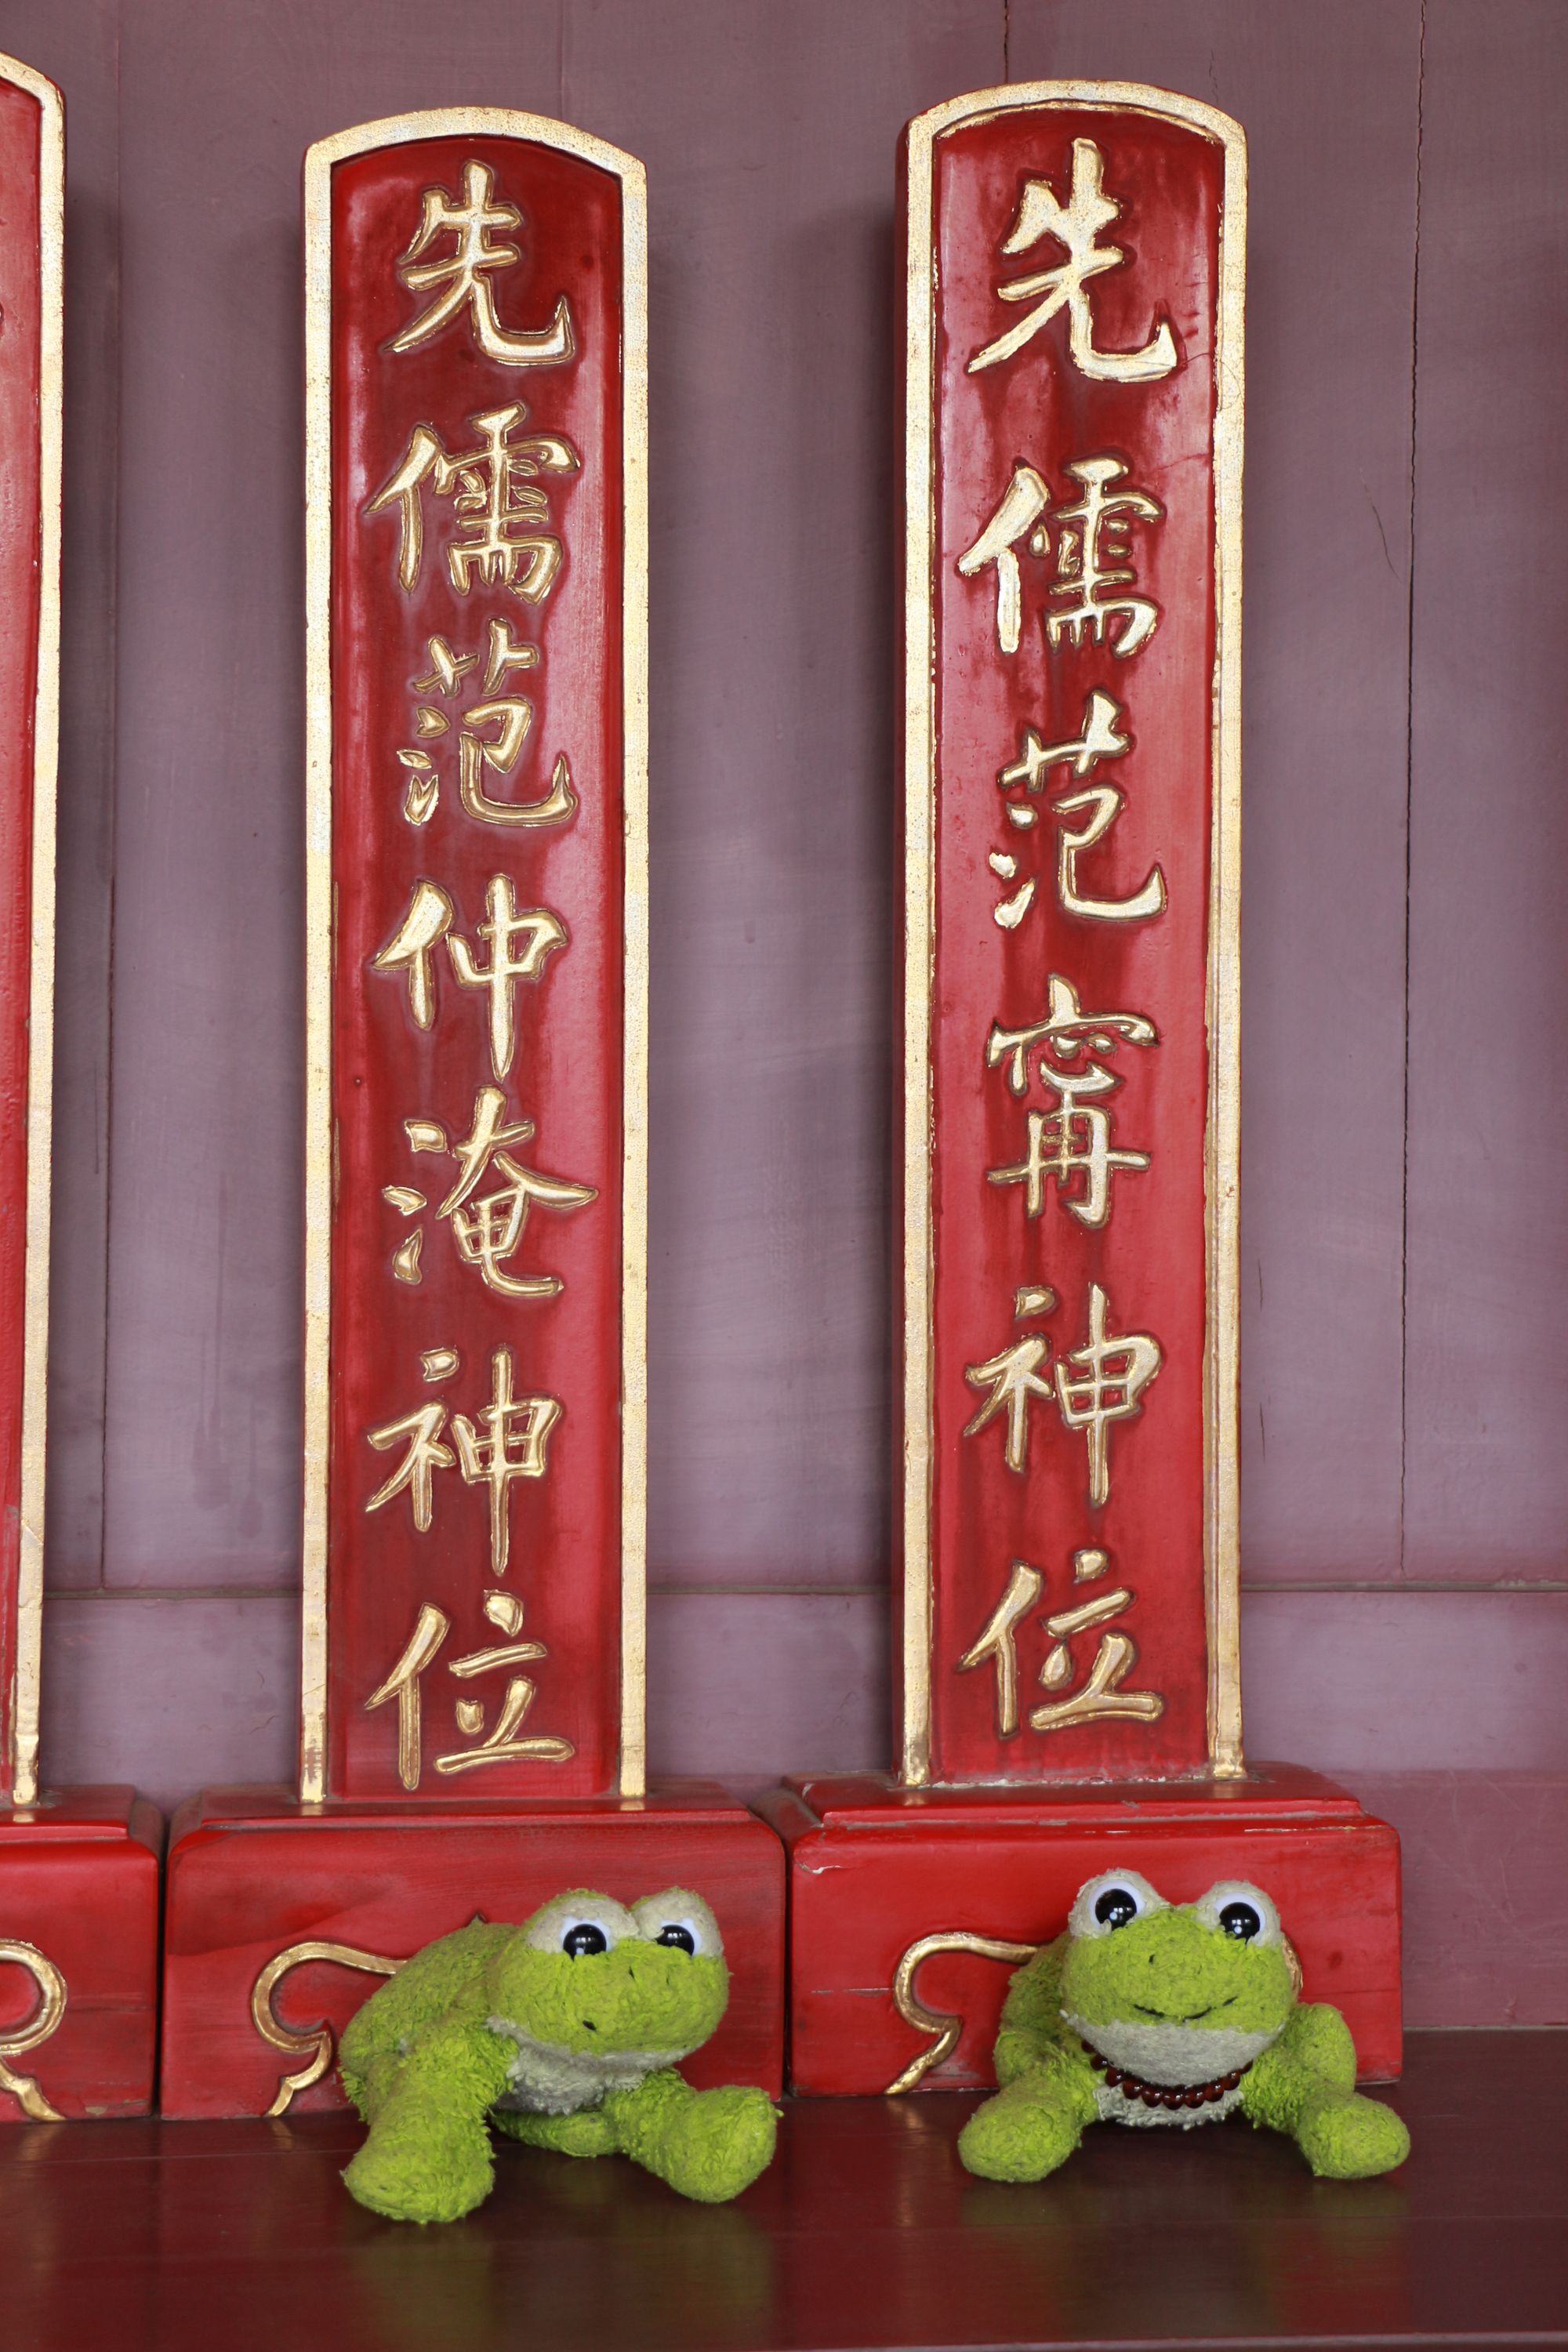 先儒范甯神位
先儒范仲淹神位